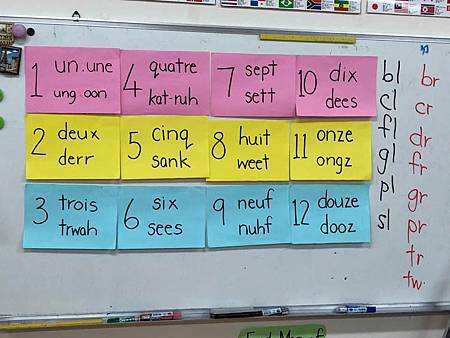 1 un.une
ung.oon
4 quatre
kat-ruh
7 sept
sett
10 dix
dees
2 deux
derr
5 cinq
sank
8 huit
weet
11 onze
ongz
3 trois
trwah
6 six
sees
9 neuf
nuhf
12 douze
dooz
bl
cl
fl
gl
pl
sl
br
cr
dr
fr
gr
pr
tr
tw.